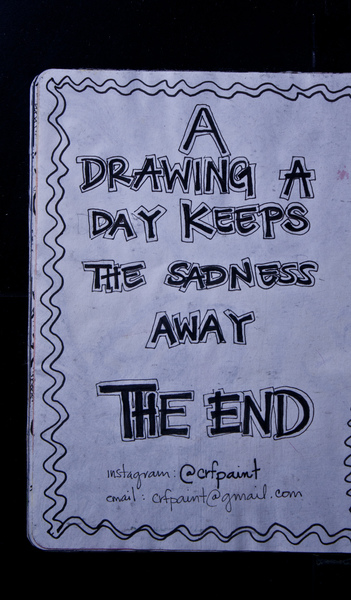 A
DRAWING A
DAY KEEPS
THE SADNESS
AWAY
THE END
instagram: @crfpaint
email: crfpaint@gmail.com